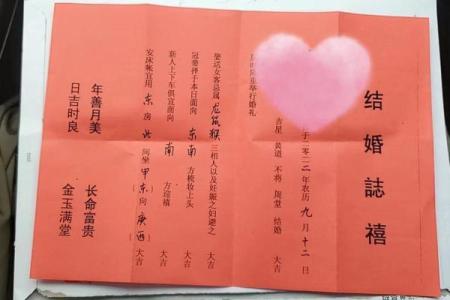 结婚誌禧
于二〇二二年农历九月十二日
吉星 黄道 不将 周堂 结婚 大吉
举行婚礼
娶送女客忌属龙鼠猴三相人以及妊娠之妇避之
冠笄择于本日面向东南方梳妆上头 大吉
新人上下车俱宜面向南方迎禧 大吉
安床帐宜用东房北间坐甲(东)向庚(西)大吉
年善月美 长命富贵
日吉时良 金玉满堂